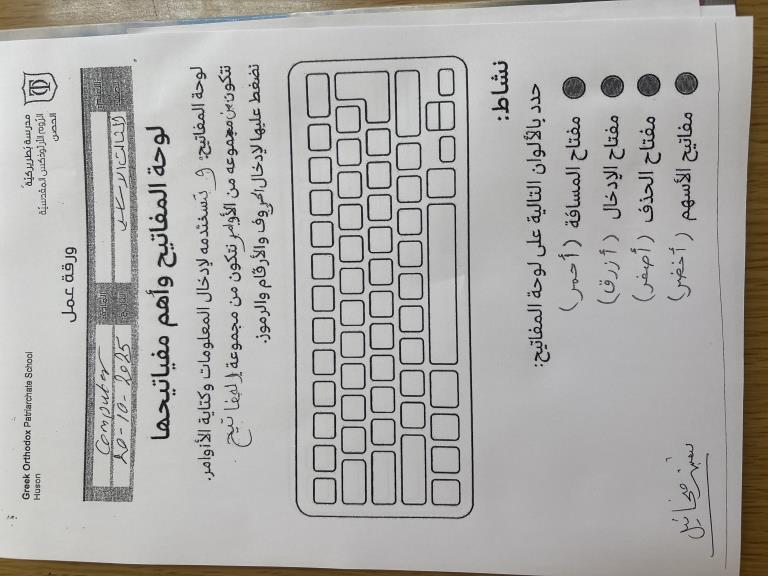 Greek Orthodox Patriarchate School
Huson
مدرسة بطريركية
الروم الأرثوذكس المقدسية
الحصن
ورقة عمل
الثالث الأساسي
Computer
20-10-2025
لوحة المفاتيح وأهم مفياتيحها
لوحة المفاتيح: تستخدمه لإدخال المعلومات وكتابة الأوامر.
تتكون من مجموعه من الأوامر تتكون من مجموعة المفاتيح
نضغط عليها لإدخال الحروف والأرقام والرموز.
نشاط:
حدد بالألوان التالية على لوحة المفاتيح:
مفتاح المسافة (أحمر)
مفتاح الإدخال (أزرق)
مفتاح الحذف (أصفر)
مفاتيح الأسهم (أخضر)